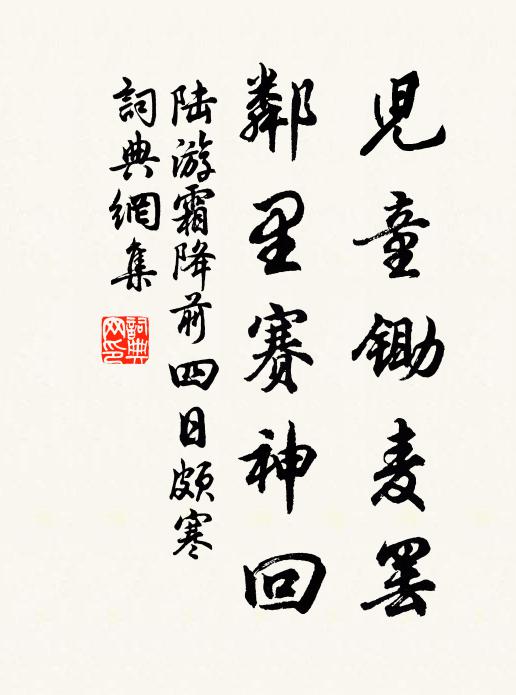 児童鋤麦罷
鄰里賽神回
陆游霜降前四日頗寒
詞典網集
詞典
网印